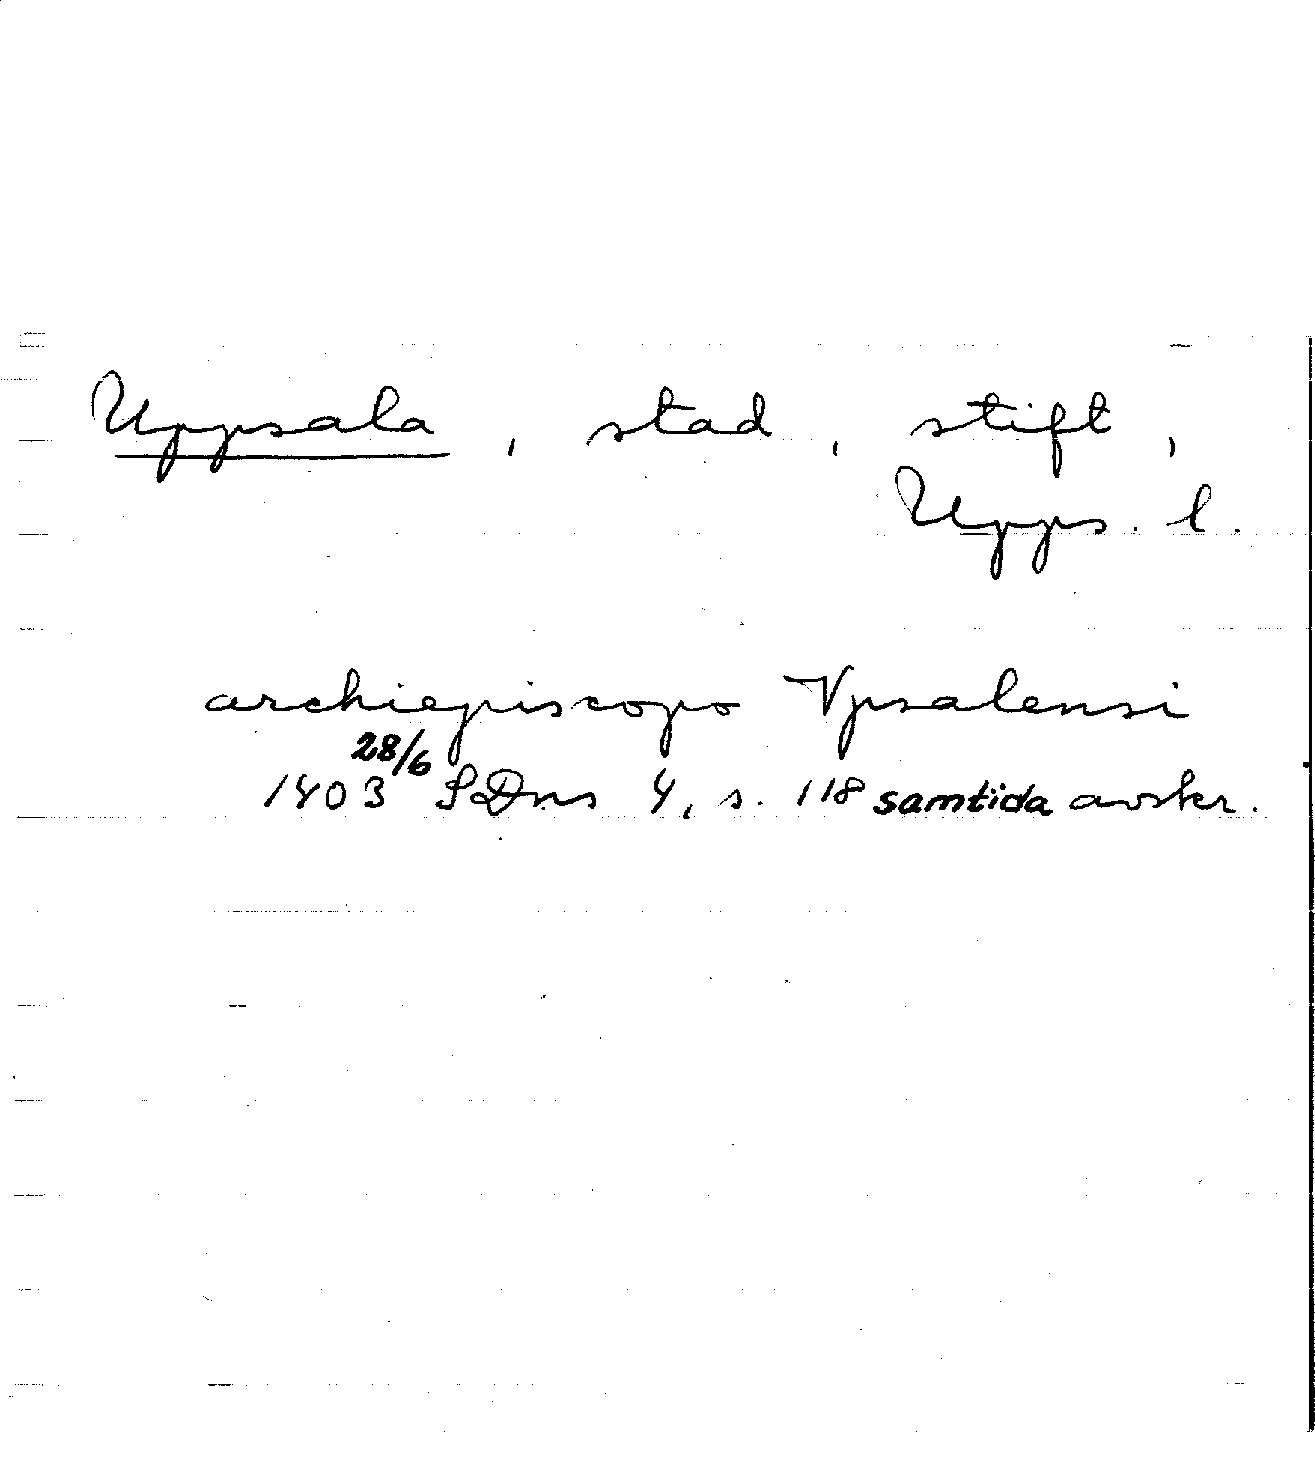 Uppsala, stad, stift,
Upps. l.
archiepiscopo Vpsalensi
1403 28/6 SDns 4, s. 118 samtida avskr.